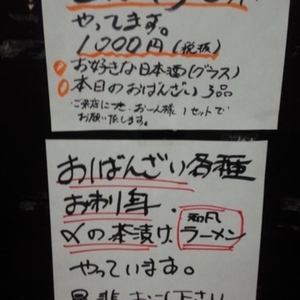 やってます。
1,000円(税抜)
お好きな日本酒(グラス)
本日のおばんざい3品
ご来店につき、お一人様1セットで
お願い致します。
おばんざい各種
お刺身、
〆の茶漬け 和風ラーメン
やっています。
是非お試し下さい